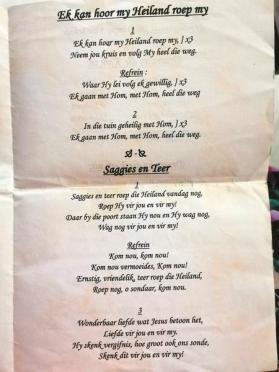 Ek kan hoor my Heiland roep my
1
Ek kan hoor my Heiland roep my, ] x3
Neem jou kruis en volg My heel die weg.
Refrein :
Waar Hy lei volg ek gewillig, ] x3
Ek gaan met Hom, met Hom, heel die weg
2
In die tuin geheilig met Hom, ] x3
Ek gaan met Hom, met Hom, heel die weg.
Saggies en Teer
1
Saggies en teer roep die Heiland vandag nog,
Roep Hy vir jou en vir my!
Daar by die poort staan Hy nou en Hy wag nog,
Wag nog vir jou en vir my!
Refrein
Kom nou, kom nou!
Kom nou vermoeides, Kom nou!
Ernstig, vriendelik, teer roep die Heiland,
Roep nog, o sondaar, kom nou.
3
Wonderbaar liefde wat Jesus betoon het,
Liefde vir jou en vir my.
Hy skenk vergifnis, hoe groot ook ons sonde,
Skenk dit vir jou en vir my!